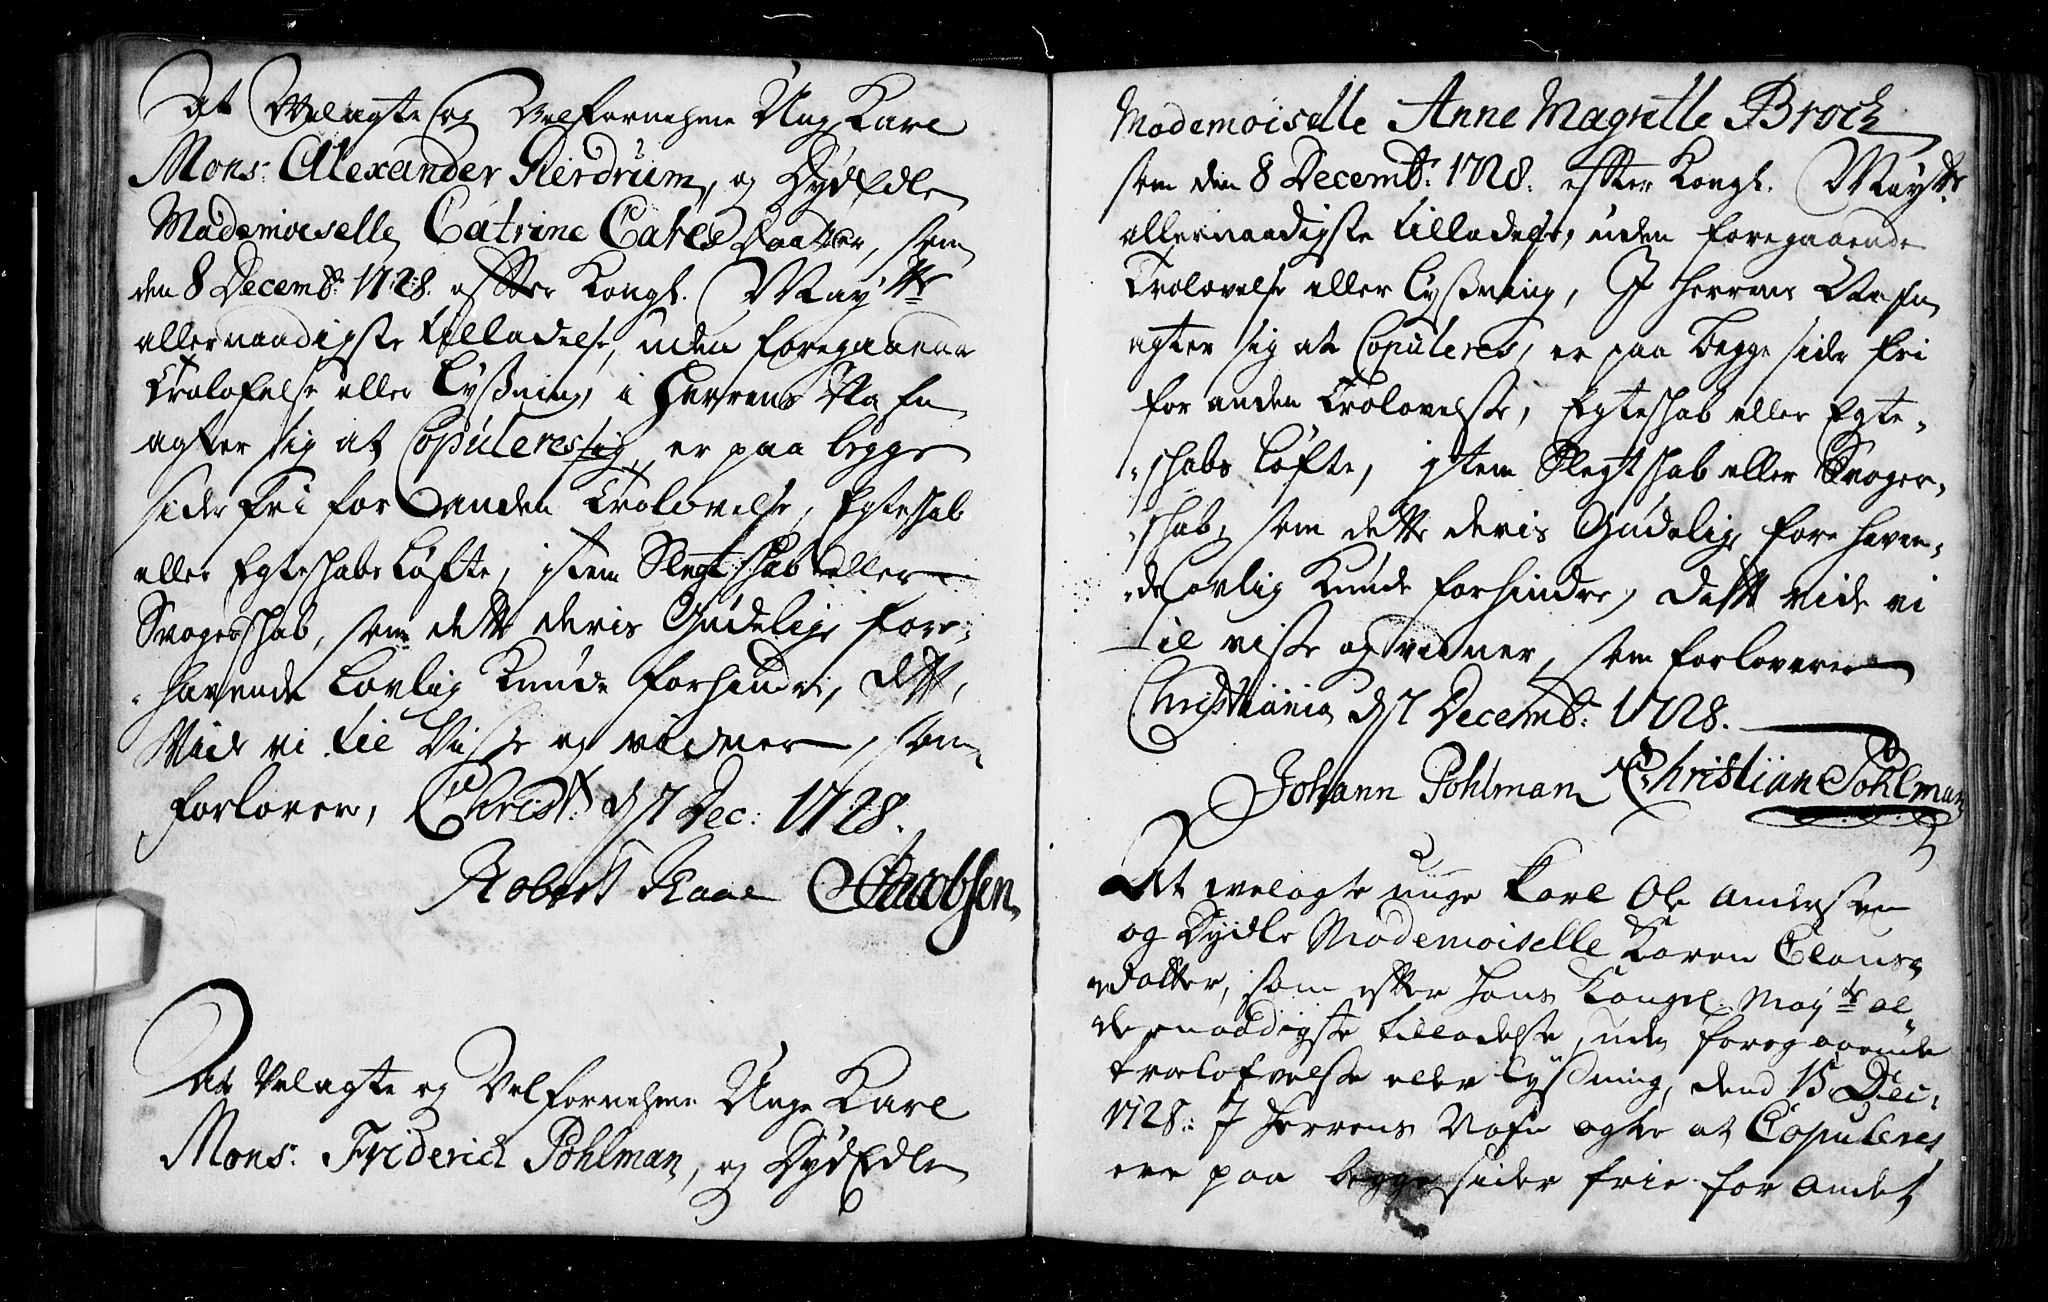 At Velagte og Velfornehme Ung Karl
Mons: Alexander Gierdrum, og DydEdle
Mademoiselle Catrine Cares daatter, som
den 8 Decemb: 1728. efter Kongl. May:tts
allernaadigste tilladelse, uden foregaaende
Trolofelse eller Lysßning, i Herrens Nafn
agter sig at Copuleres sig, er paa begge
sider fri for anden Trolovelse, Egteskab
eller Egteskabs Løfte, jtem Slegtskab eller
Svogerskab, som dette deris Gudelige fore-
-havende Lovlig Kunde forhindre, dette,
Vide vi til Visse og vidner, som
forlover, Christ: d. 7 Dec: 1728.
Robert Kaae Jacobsen
At Velagte og Velfornehme Unge Karl
Mons: Friderich Pohlman, og DydEdle
Mademoiselle Anne Magrette Brock
som den 8 Decemb: 1728. efter Kongl. May:tts
allernaadigste tilladelse, uden foregaaende
Trolovelse eller Lysßning, J Herrens Nafn
agter sig at Copuleres, er paa begge side fri
for anden Trolovelse, Egteskab eller Egte-
-skabs Løfte, jtem Slegtskab eller Svoger-
-skab, som dette deris Gudelige forehaven-
-de lovlig Kunde forhindre, dette vide vi
til visse og vidner, som forlovere
Christiania d. 7 Decemb: 1728.
Johann Pohlman Christian Pohlman
At velagte unge Karl Ole Andersen
og Dydle Mademoiselle Karen Claus-
datter, som efter hans Kongel May:ts al-
dernaadigste tilladelse, uden foregaaende
trolofvelse eller lysning, dend 15 Dec:
1728: J Herrens Nafn agte at Copuleres
ere paa begge sider frie for andet